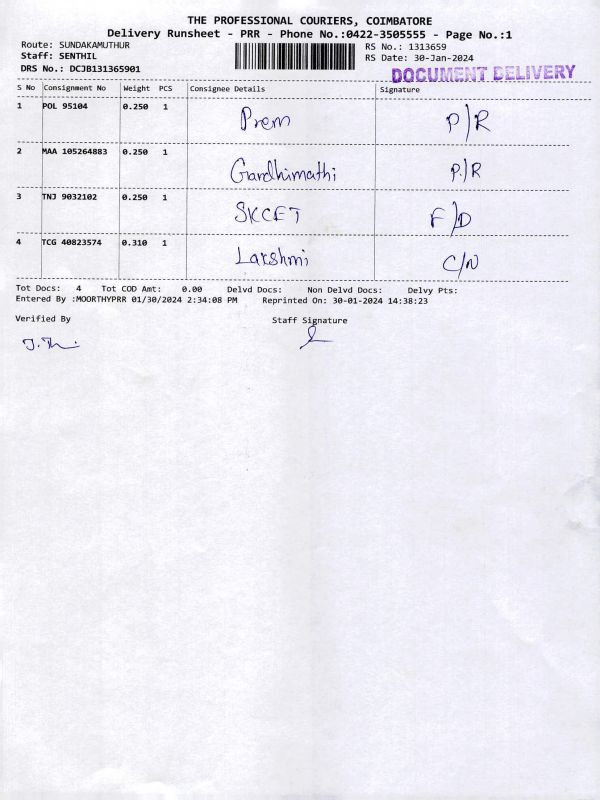 THE PROFESSIONAL COURIERS, COIMBATORE
Delivery Runsheet - PRR - Phone No.:0422-3505555 - Page No.:1
Route: SUNDAKAMUTHUR
Staff: SENTHIL
DRS No.: DCJB131365901
RS No.: 1313659
RS Date: 30-Jan-2024
DOCUMENT DELIVERY
S No Consignment No Weight PCS Consignee Details Signature
1 POL 95104 0.250 1 Prem P/R
2 MAA 105264883 0.250 1 Gandhimathi P/R
3 TNJ 9032102 0.250 1 SKCET F/D
4 TCG 40823574 0.310 1 Lakshmi C/N
Tot Docs: 4 Tot COD Amt: 0.00 Delvd Docs: Non Delvd Docs: Delvy Pts:
Entered By :MOORTHYPRR 01/30/2024 2:34:08 PM Reprinted On: 30-01-2024 14:38:23
Verified By Staff Signature